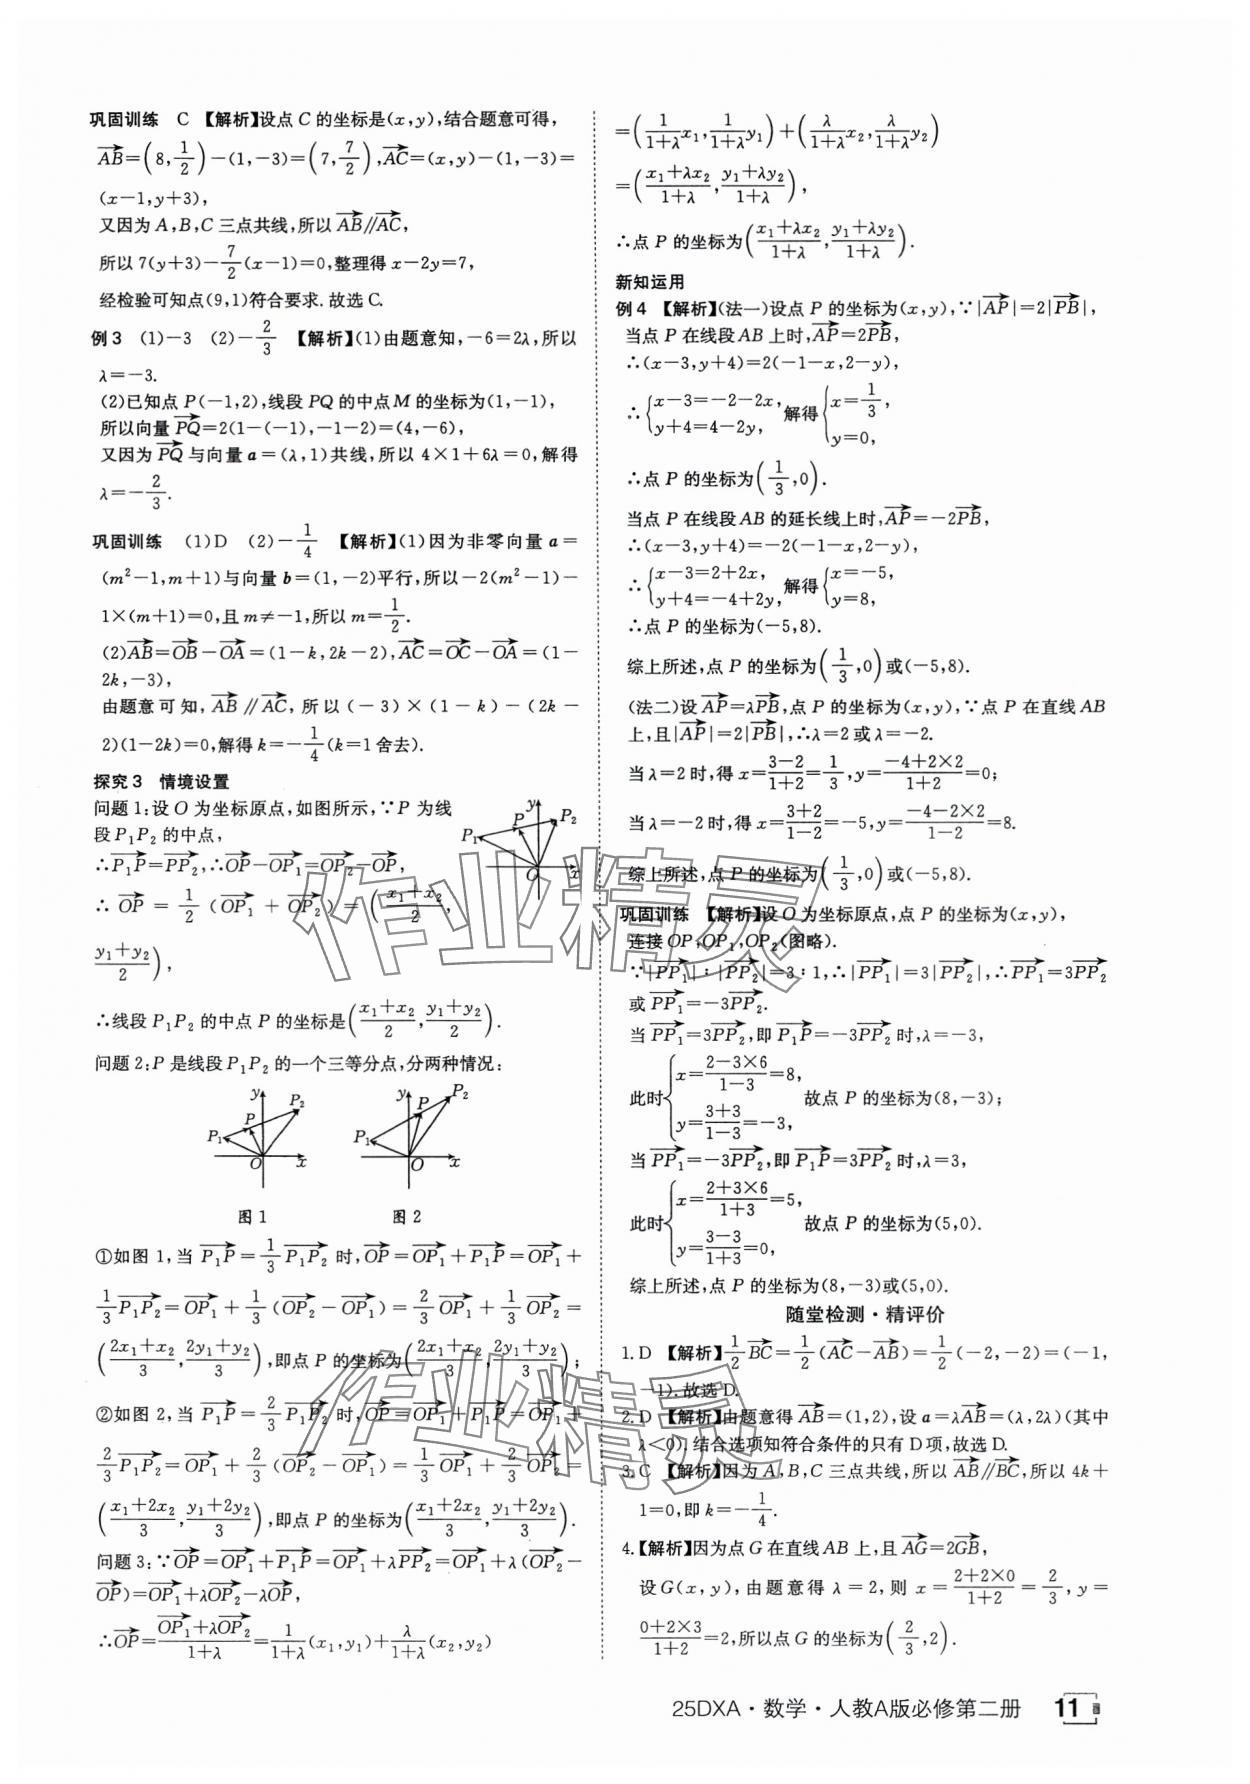 巩固训练 C 【解析】设点 C 的坐标是(x,y),结合题意可得,
AB→=(8,1/2)-(1,-3)=(7,7/2),AC→=(x,y)-(1,-3)=
(x-1,y+3),
又因为 A,B,C 三点共线,所以 AB→∥AC→,
所以 7(y+3)-7/2(x-1)=0,整理得 x-2y=7,
经检验可知点(9,1)符合要求.故选C.
例3 (1)-3 (2)-2/3 【解析】(1)由题意知,-6=2λ,所以
λ=-3.
(2)已知点 P(-1,2),线段 PQ 的中点 M 的坐标为(1,-1),
所以向量 PQ→=2(1-(-1),-1-2)=(4,-6),
又因为 PQ→ 与向量 a=(λ,1)共线,所以 4×1+6λ=0,解得
λ=-2/3.
巩固训练 (1)D (2)-1/4 【解析】(1)因为非零向量 a=
(m²-1,m+1)与向量 b=(1,-2)平行,所以-2(m²-1)-
1×(m+1)=0,且 m≠-1,所以 m=1/2.
(2)AB→=OB→-OA→=(1-k,2k-2),AC→=OC→-OA→=(1-
2k,-3),
由题意可知,AB→∥AC→,所以(-3)×(1-k)-(2k-
2)(1-2k)=0,解得 k=-1/4(k=1 舍去).
探究3 情境设置
问题 1:设 O 为坐标原点,如图所示,∵P 为线
段 P₁P₂ 的中点,
∴P₁P→=PP₂→,∴OP→-OP₁→=OP₂→-OP→,
∴ OP→ = 1/2 (OP₁→ + OP₂→) = (x₁+x₂/2,
y₁+y₂/2),
y P P₂ P₁ O x
∴线段 P₁P₂ 的中点 P 的坐标是(x₁+x₂/2,y₁+y₂/2).
问题 2:P 是线段 P₁P₂ 的一个三等分点,分两种情况:
y P P₂ P₁ O x
y P P₂ P₁ O x
图1 图2
①如图 1,当 P₁P→=1/3 P₁P₂→ 时,OP→=OP₁→+P₁P→=OP₁→+
1/3 P₁P₂→=OP₁→+1/3(OP₂→-OP₁→)=2/3 OP₁→+1/3 OP₂→=
(2x₁+x₂/3,2y₁+y₂/3),即点 P 的坐标为(2x₁+x₂/3,2y₁+y₂/3);
②如图 2,当 P₁P→=2/3 P₁P₂→ 时,OP→=OP₁→+P₁P→=OP₁→+
2/3 P₁P₂→=OP₁→+2/3(OP₂→-OP₁→)=1/3 OP₁→+2/3 OP₂→=
(x₁+2x₂/3,y₁+2y₂/3),即点 P 的坐标为(x₁+2x₂/3,y₁+2y₂/3).
问题 3:∵OP→=OP₁→+P₁P→=OP₁→+λPP₂→=OP₁→+λ(OP₂→-
OP→)=OP₁→+λOP₂→-λOP→,
∴OP→=OP₁→+λOP₂→/1+λ=1/1+λ(x₁,y₁)+λ/1+λ(x₂,y₂)
=(1/1+λ x₁,1/1+λ y₁)+(λ/1+λ x₂,λ/1+λ y₂)
=(x₁+λx₂/1+λ,y₁+λy₂/1+λ),
∴点 P 的坐标为(x₁+λx₂/1+λ,y₁+λy₂/1+λ).
新知运用
例4 【解析】(法一)设点 P 的坐标为(x,y),∵|AP→|=2|PB→|,
当点 P 在线段 AB 上时,AP→=2PB→,
∴(x-3,y+4)=2(-1-x,2-y),
∴{x-3=-2-2x, y+4=4-2y, 解得{x=1/3, y=0,
∴点 P 的坐标为(1/3,0).
当点 P 在线段 AB 的延长线上时,AP→=-2PB→,
∴(x-3,y+4)=-2(-1-x,2-y),
∴{x-3=2+2x, y+4=-4+2y, 解得{x=-5, y=8,
∴点 P 的坐标为(-5,8).
综上所述,点 P 的坐标为(1/3,0)或(-5,8).
(法二)设 AP→=λPB→,点 P 的坐标为(x,y),∵点 P 在直线 AB
上,且|AP→|=2|PB→|,∴λ=2 或 λ=-2.
当 λ=2 时,得 x=3-2/1+2=1/3,y=-4+2×2/1+2=0;
当 λ=-2 时,得 x=3+2/1-2=-5,y=-4-2×2/1-2=8.
综上所述,点 P 的坐标为(1/3,0)或(-5,8).
巩固训练 【解析】设 O 为坐标原点,点 P 的坐标为(x,y),
连接 OP,OP₁,OP₂(图略).
∵|PP₁→|∶|PP₂→|=3∶1,∴|PP₁→|=3|PP₂→|,∴PP₁→=3PP₂→
或 PP₁→=-3PP₂→.
当 PP₁→=3PP₂→,即 P₁P→=-3PP₂→ 时,λ=-3,
此时{x=2-3×6/1-3=8, y=3+3/1-3=-3, 故点 P 的坐标为(8,-3);
当 PP₁→=-3PP₂→,即 P₁P→=3PP₂→ 时,λ=3,
此时{x=2+3×6/1+3=5, y=3-3/1+3=0, 故点 P 的坐标为(5,0).
综上所述,点 P 的坐标为(8,-3)或(5,0).
随堂检测·精评价
1. D 【解析】1/2 BC→=1/2(AC→-AB→)=1/2(-2,-2)=(-1,
-1).故选D.
2. D 【解析】由题意得 AB→=(1,2),设 a=λAB→=(λ,2λ)(其中
λ<0).结合选项知符合条件的只有 D 项,故选 D.
3. C 【解析】因为 A,B,C 三点共线,所以 AB→∥BC→,所以 4k+
1=0,即 k=-1/4.
4.【解析】因为点 G 在直线 AB 上,且 AG→=2GB→,
设 G(x,y),由题意得 λ=2,则 x=2+2×0/1+2=2/3,y=
0+2×3/1+2=2,所以点 G 的坐标为(2/3,2).
25DXA·数学·人教A版必修第二册 11
作业精灵
作业精灵